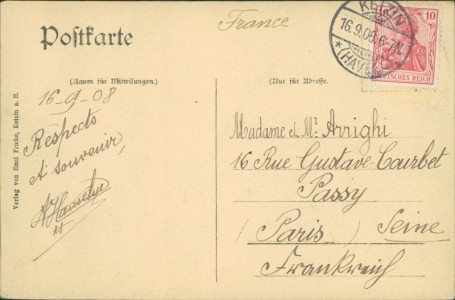 France
Postkarte
KETZIN
16.9.08.6-7N.
*(HAVEL)
10
DEUTSCHES REICH
(Raum für Mitteilungen.)
(Nur für Adresse.)
16-9-08
Respects
et souvenir,
Madame et Mr Arrighi
16 Rue Gustave Courbet
Passy
(Paris) Seine
Frankreich
Verlag von Emil Fricke, Ketzin a. H.